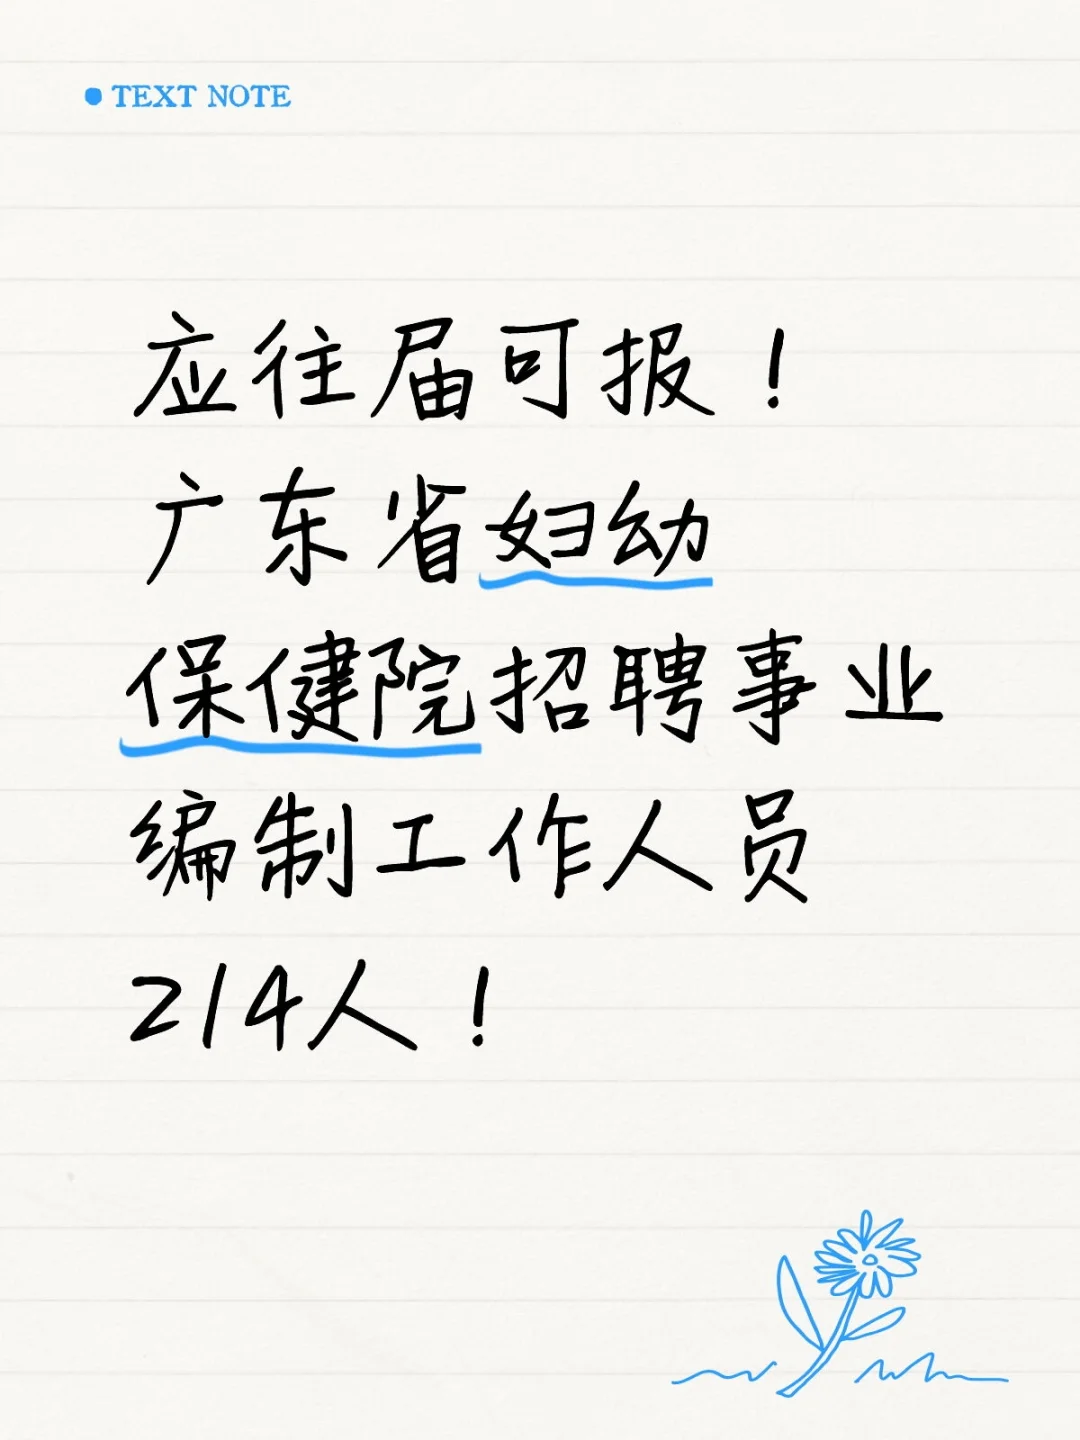 TEXT NOTE
应往届可报！
广东省妇幼
保健院招聘事业
编制工作人员
214人！